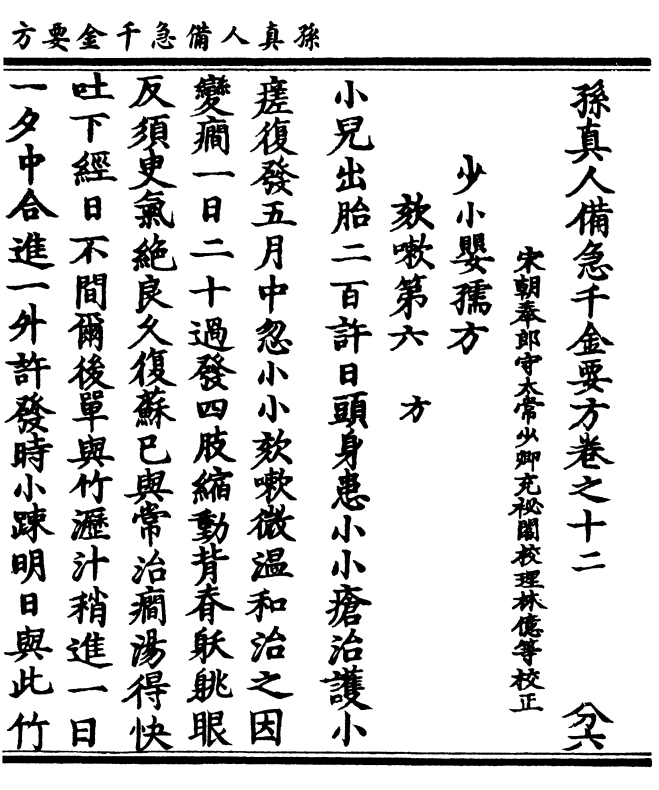 孫真人備急千金要方
孫真人備急千金要方卷之十二 分六
宋朝奉郎守太常少卿充祕閣校理林億等校正
少小嬰孺方
欬嗽第六 方
小兒出胎二百許日頭身患小小瘡治護小
瘥復發五月中忽小小欬嗽微温和治之因
變癇一日二十過發四肢縮動背脊𨈭䠷眼
反須臾氣絶良久復蘇已與常治癇湯得快
吐下經日不間爾後單與竹瀝汁稍進一日
一夕中合進一外許發時小踈明日與此竹